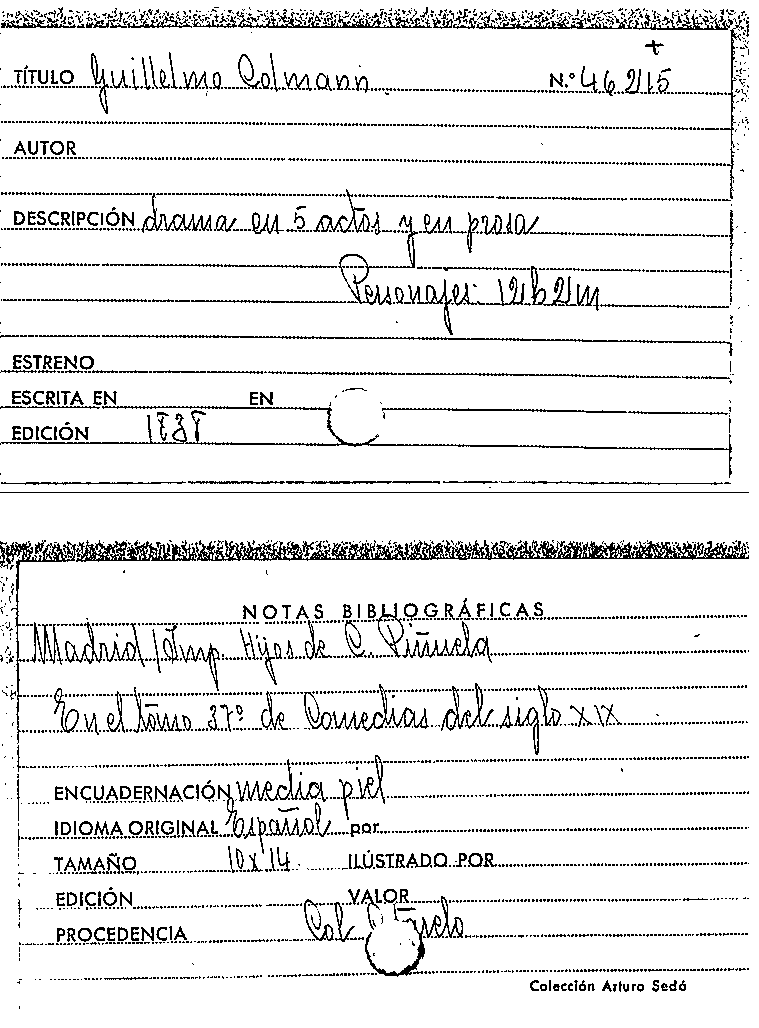 +
TÍTULO Guillelmo Colmann. N.º 46215
AUTOR
DESCRIPCIÓN drama en 5 actos y en prosa
Personajes: 12h 2m
ESTRENO
ESCRITA EN EN
EDICIÓN 1838
NOTAS BIBLIOGRÁFICAS
Madrid/Imp. Hijos de C. Piñuela
En el tomo 37º de Comedias del siglo XIX
ENCUADERNACIÓN media piel
IDIOMA ORIGINAL Español por
TAMAÑO 10 x 14 ILUSTRADO POR
EDICIÓN VALOR
PROCEDENCIA Col.
Colección Arturo Sedó